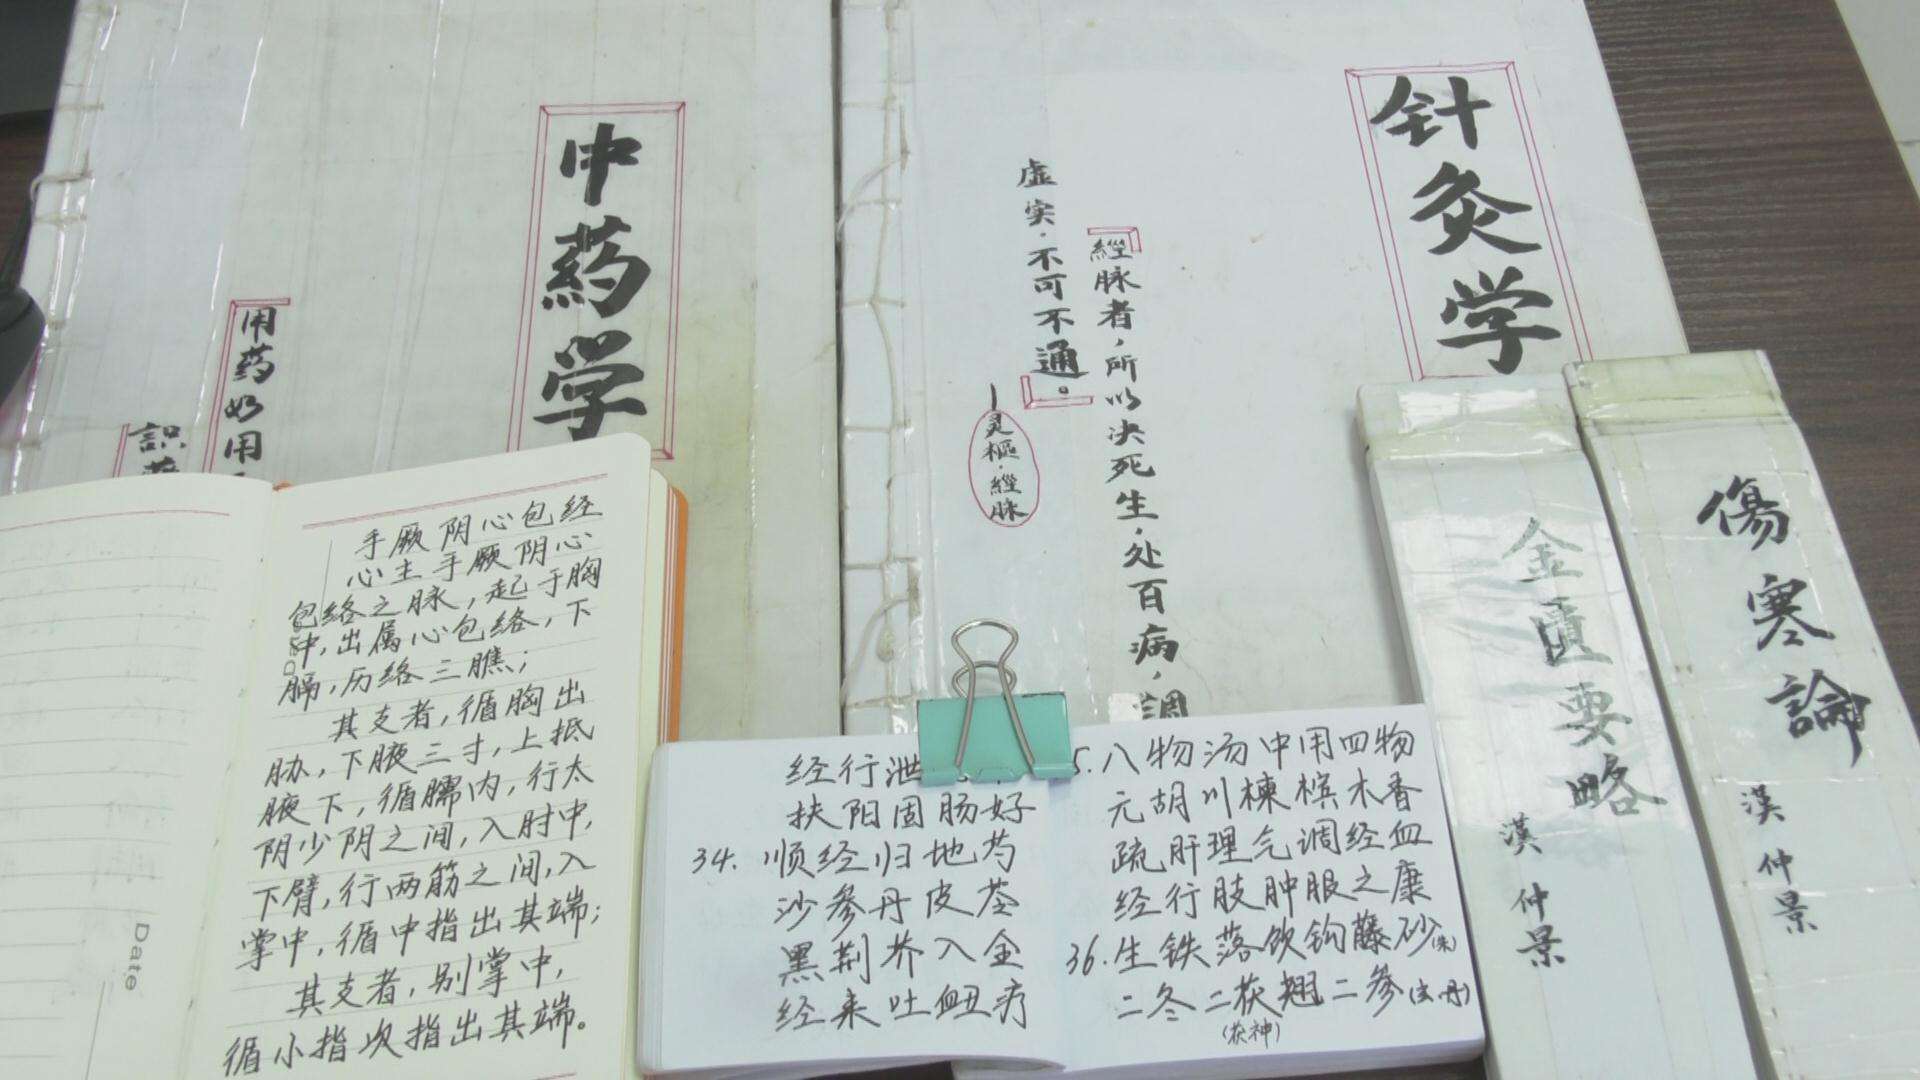 中药学
用药如用
識
针灸学
經脉者，所以决死生，处百病，調
虚实，不可不通。
—灵樞·經脉
金匱要略
漢 仲景
傷寒論
漢 仲景
手厥阴心包经
心主手厥阴心
包络之脉，起于胸
中，出属心包络，下
膈，历络三膲；
其支者，循胸出
胁，下腋三寸，上抵
腋下，循臑内，行太
阴少阴之间，入肘中，
下臂，行两筋之间，入
掌中，循中指出其端；
其支者，别掌中，
循小指次指出其端。
Date
经行泄
扶阳固肠好
34. 顺经归地芍
沙参丹皮苓
黑荆芥入金
经来吐衄疗
5. 八物汤中用四物
元胡川楝槟木香
疏肝理气调经血
经行肢肿服之康
36. 生铁落饮钩藤砂(朱)
二冬二茯翘二参(玄丹)
(茯神)